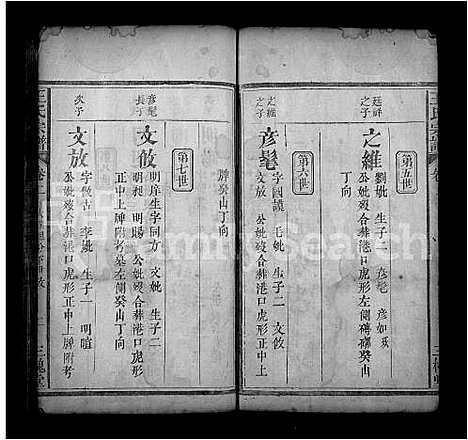 王氏宗譜
卷
第五世
廷祥
之子
之維
劉妣 生子二 彥髦 彥如 歿
公妣歿合葬港口虎形左側磚礤癸山
丁向
第六世
之維
之子
彥髦
字國讀 毛妣 生子二 文攸
文放 公妣歿合葬港口虎形正中上
牌癸山丁向
第七世
彥髦
長子
文攸
明庠生字同方 文妣 生子二
明桓 明暘 公妣歿合葬港口虎形
正中上牌附考墓左側癸山丁向
次子
文放
字倣古 李妣 生子一 明暄
公妣歿合葬港口虎形正中上牌附考
王氏宗譜
卷
三槐堂
FamilySearch